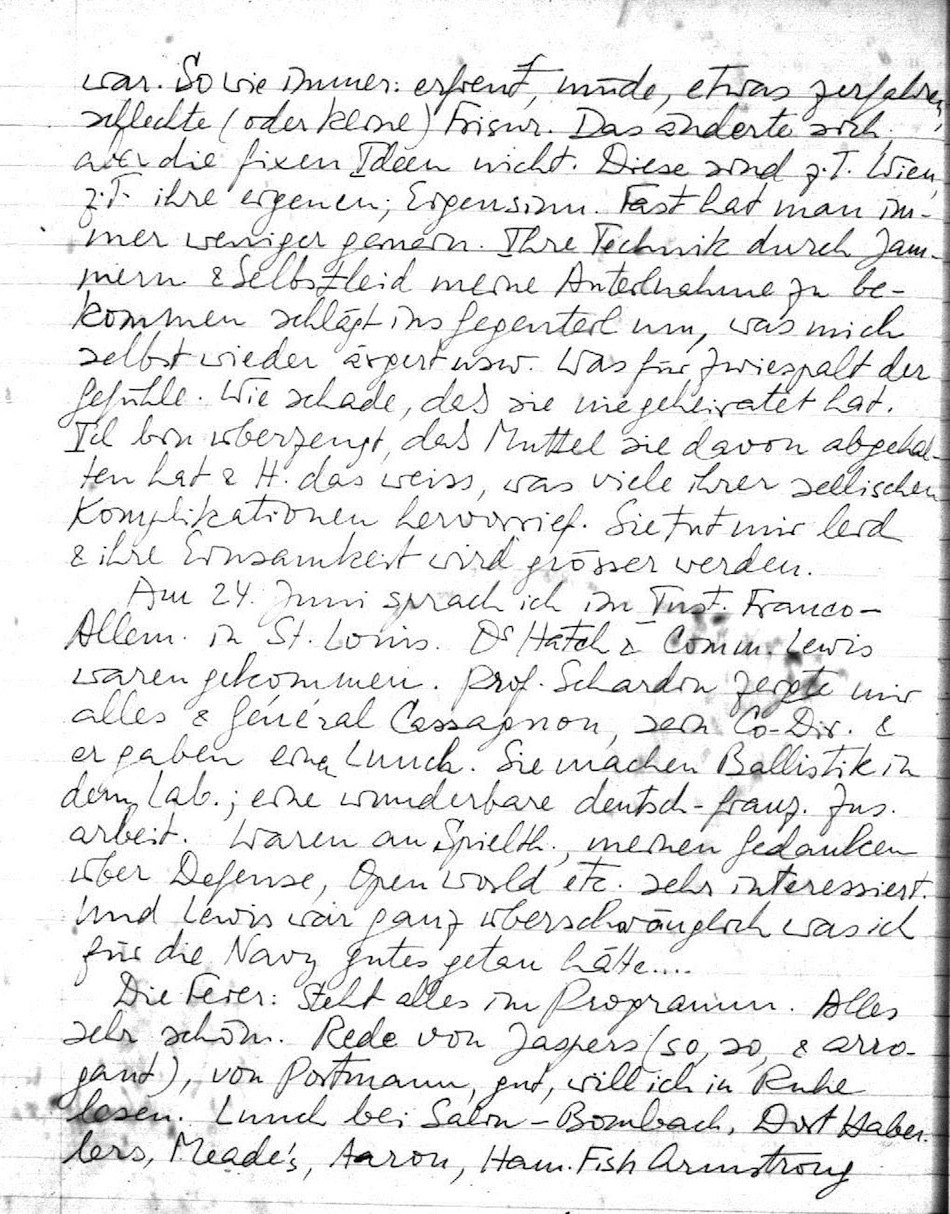 war. So wie immer: erfreut, müde, etwas zerfahren,
schlechte (oder keine) Frisur. Das änderte sich,
aber die fixen Ideen nicht. Diese sind z.T. Wien,
z.T. ihre eigenen; Eigensinn. Fast hat man im-
mer weniger gemein. Ihre Technik durch Jam-
mern & Selbstleid meine Anteilnahme zu be-
kommen schlägt ins Gegenteil um, was mich
selbst wieder ärgert usw. Was für Zwiespalt der
Gefühle. Wie schade, daß sie nie geheiratet hat.
Ich bin überzeugt, daß Muttel sie davon abgehal-
ten hat & H. das weiss, was viele ihrer sellischen
Komplikationen hervorrief. Sie tut mir leid
& ihre Einsamkeit wird grösser werden.
Am 24. Juni sprach ich im Inst. Franco-
Allem. in St. Louis. Dr Hatch & Comm. Lewis
waren gekommen. Prof. Schardin zeigte mir
alles & Général Cassagnou, sein Co-Dir. &
er gaben einen Lunch. Sie machen Ballistik in
dem Lab.; eine wunderbare deutsch-franz. Zus.
arbeit. Waren an Spielth., meinen Gedanken
über Defense, Open World etc. sehr interessiert.
Und Lewis war ganz überschwänglich was ich
für die Navy gutes getan hätte....
Die Feier: Steht alles im Programm. Alles
sehr schön. Rede von Jaspers (so, so, & arro-
gant), von Portmann, gut, will ich in Ruhe
lesen. Lunch bei Salin-Bombach, Dort Haber-
lers, Meade's, Aaron, Ham. Fish Armstrong